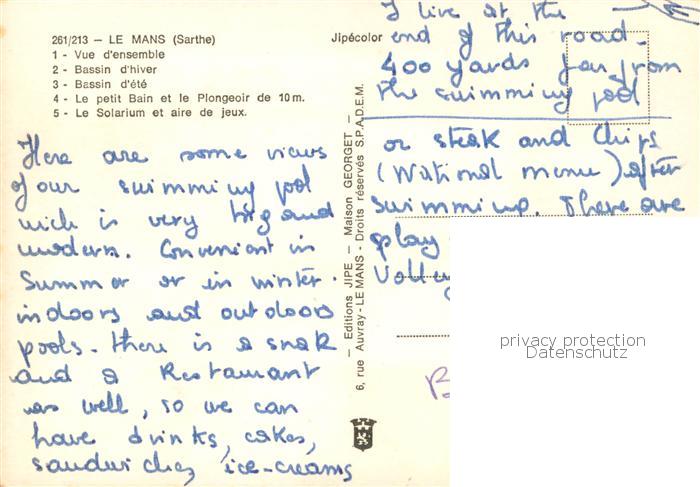 261/213 — LE MANS (Sarthe)
1 - Vue d'ensemble
2 - Bassin d'hiver
3 - Bassin d'été
4 - Le petit Bain et le Plongeoir de 10 m.
5 - Le Solarium et aire de jeux.
Jipécolor
Here are some views
of our swimming pool
wich is very big and
modern. Convenient in
Summer or in winter.
indoors and outdoors
pools. there is a snak
and a Restaurant
as well, so we can
have drinks, cakes,
sandwiches, ice-creams
6, rue Auvray - LE MANS - Droits réservés S.P.A.D.E.M.
— Editions JIPE — Maison GEORGET —
I live at the
end of this road.
400 yards far from
the swimming pool
or steak and Chips
(National menu) after
swimming. There are
play
Volley
privacy protection
Datenschutz